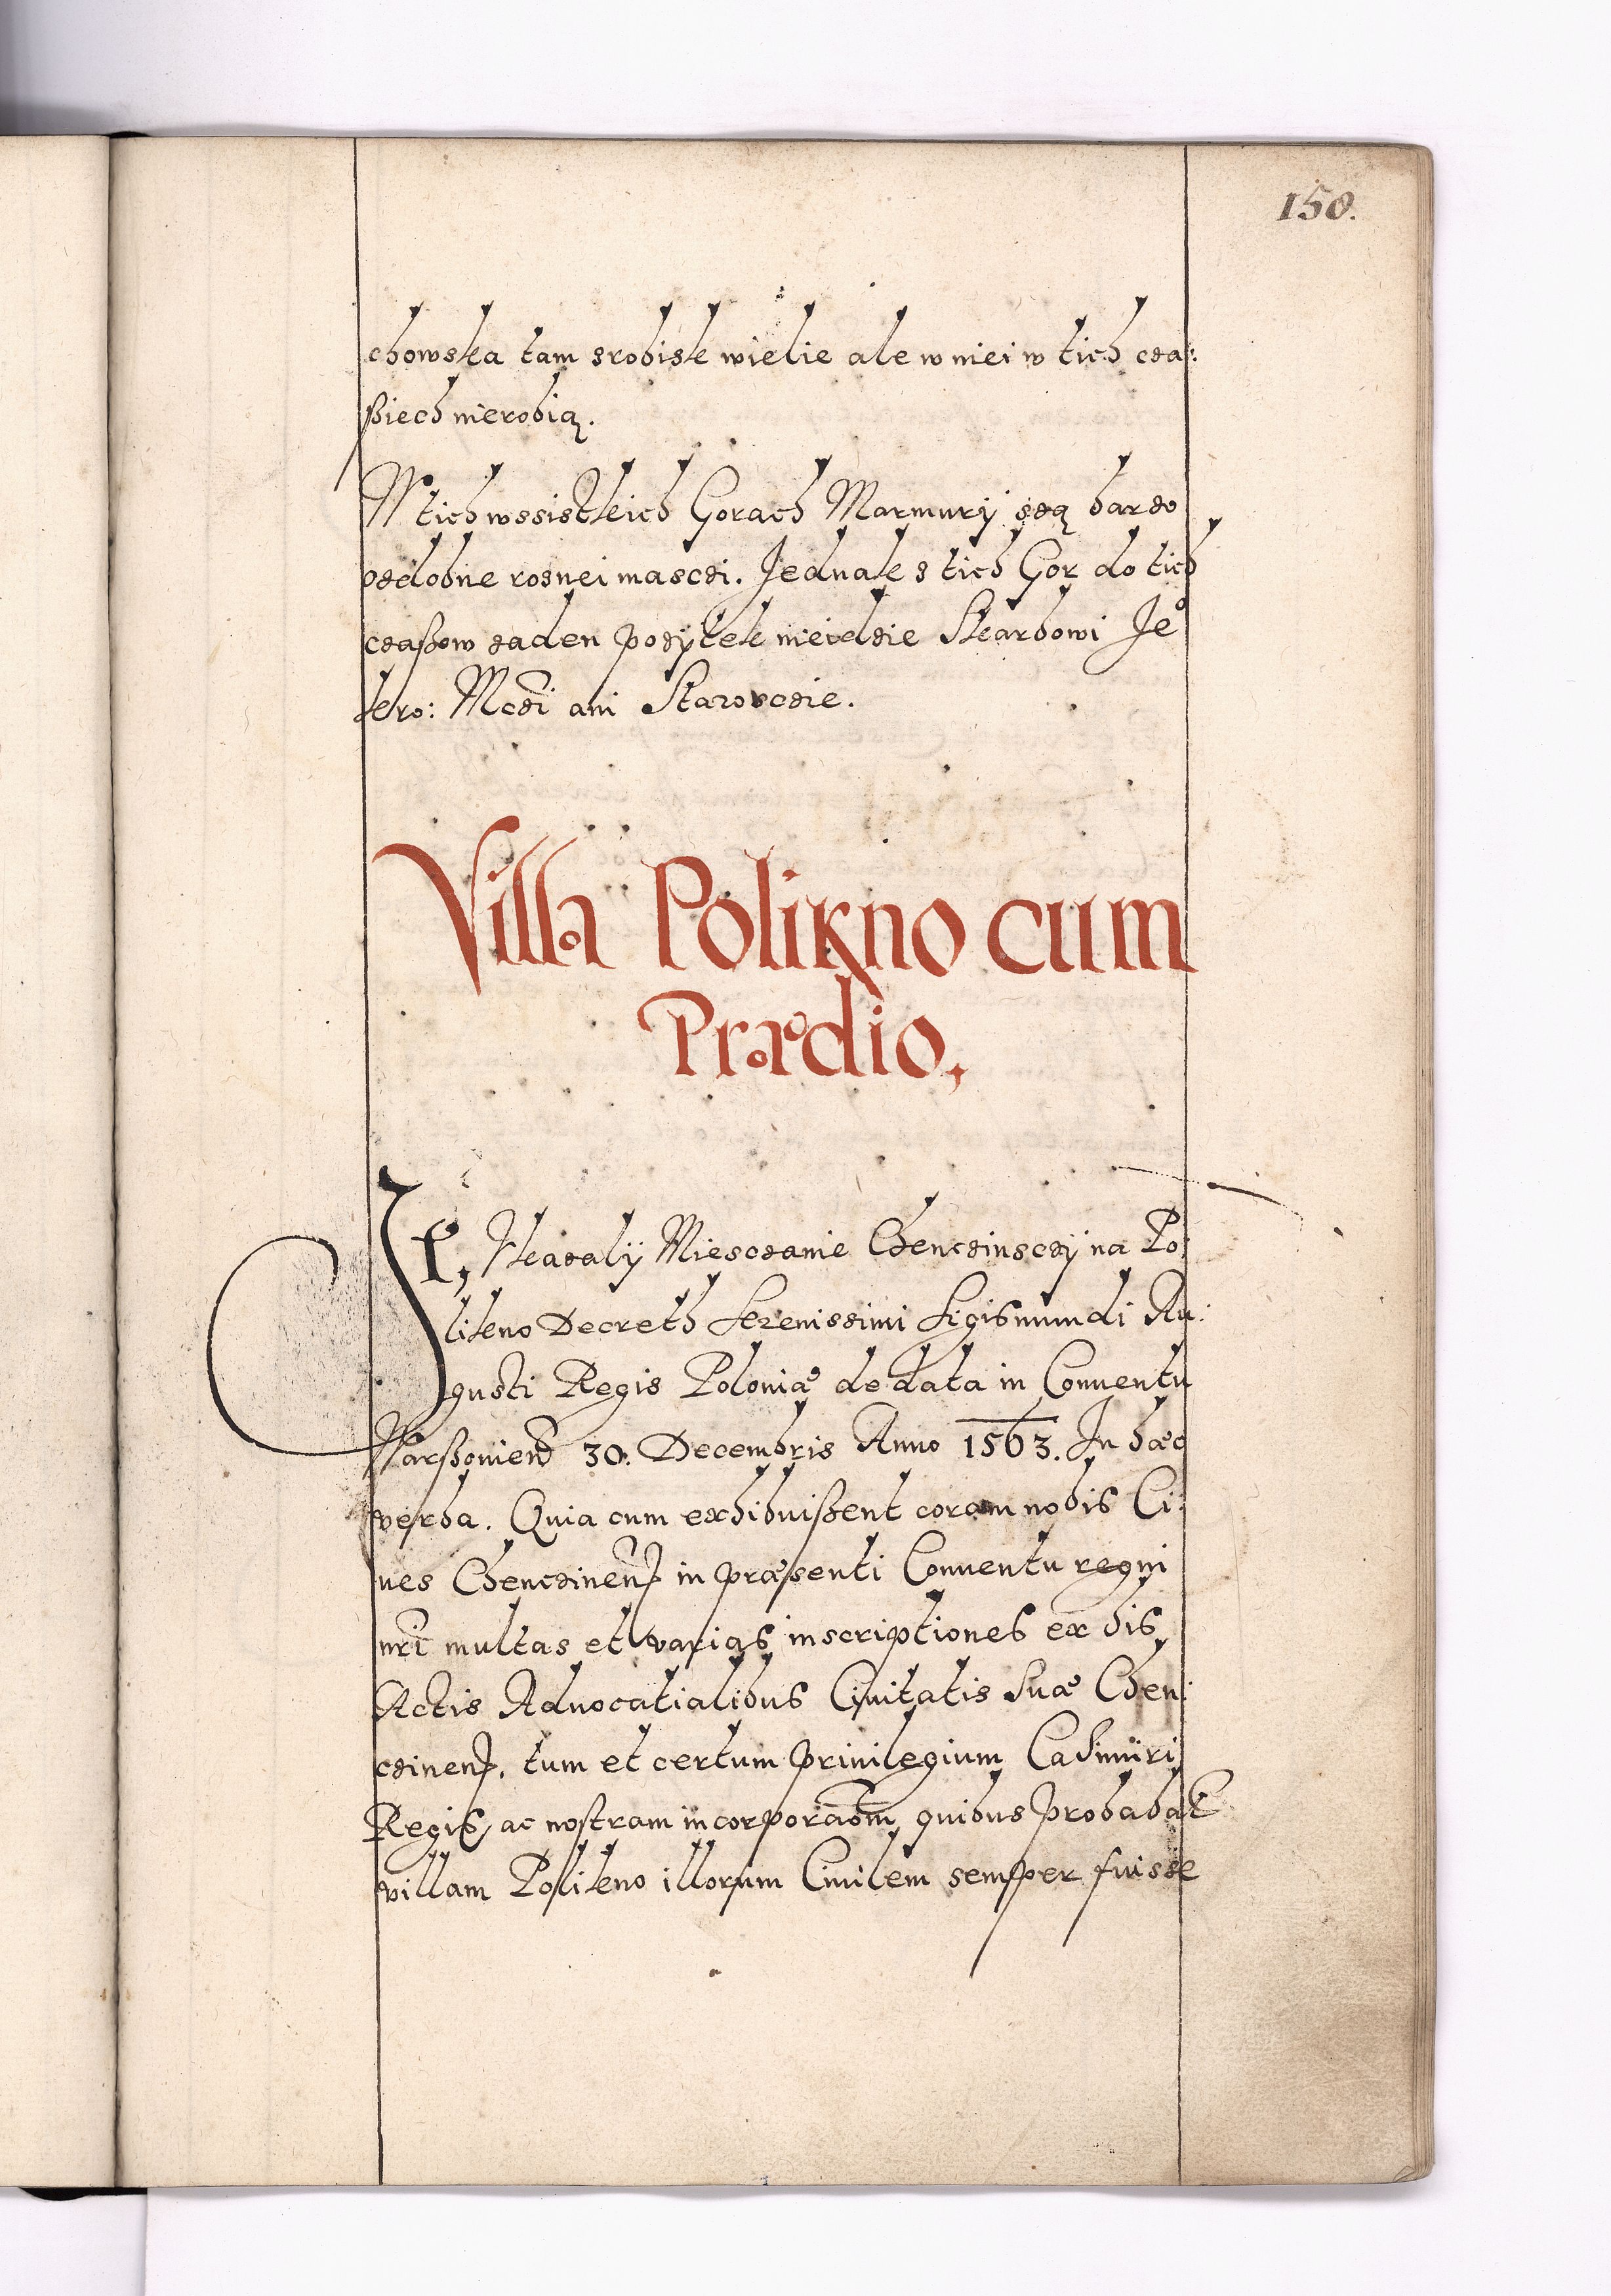 150.
chowska tam srobisk wielie ale w niei w tich cza:
ßiech nierobią.
W tich wssistkich Gorach Marmurÿ szą bardo
ozdobne roznei masczi. Jednak s tich Gor do tich
czaßow zaden pozÿtek nieidzie Skarbowi Je°
kro: Mczi ani Staroscie.
Villa Polikno cum
Prædio,
JT, Ukazalÿ Miesczanie Chencinsczÿ na Po:
likno Decreth Serenissimi Sigismundi Au:
gusti Regis Poloniæ de data in Conuentu
Warßouien 30. Decembris Anno 1563. In hæc
verba. Quia cum exhibuißent coram nobis Ci:
ues Chencinens in præsenti Conuentu regni
nri multas et varias inscriptiones ex his
Actis Aduocatialibus Ciuitatis suæ Chen:
cinens, tum et certum priuilegium Casimiri
Regis, ac nostram incorporaõm quibus probabat
villam Polikno illorum Ciuilem semper fuisse